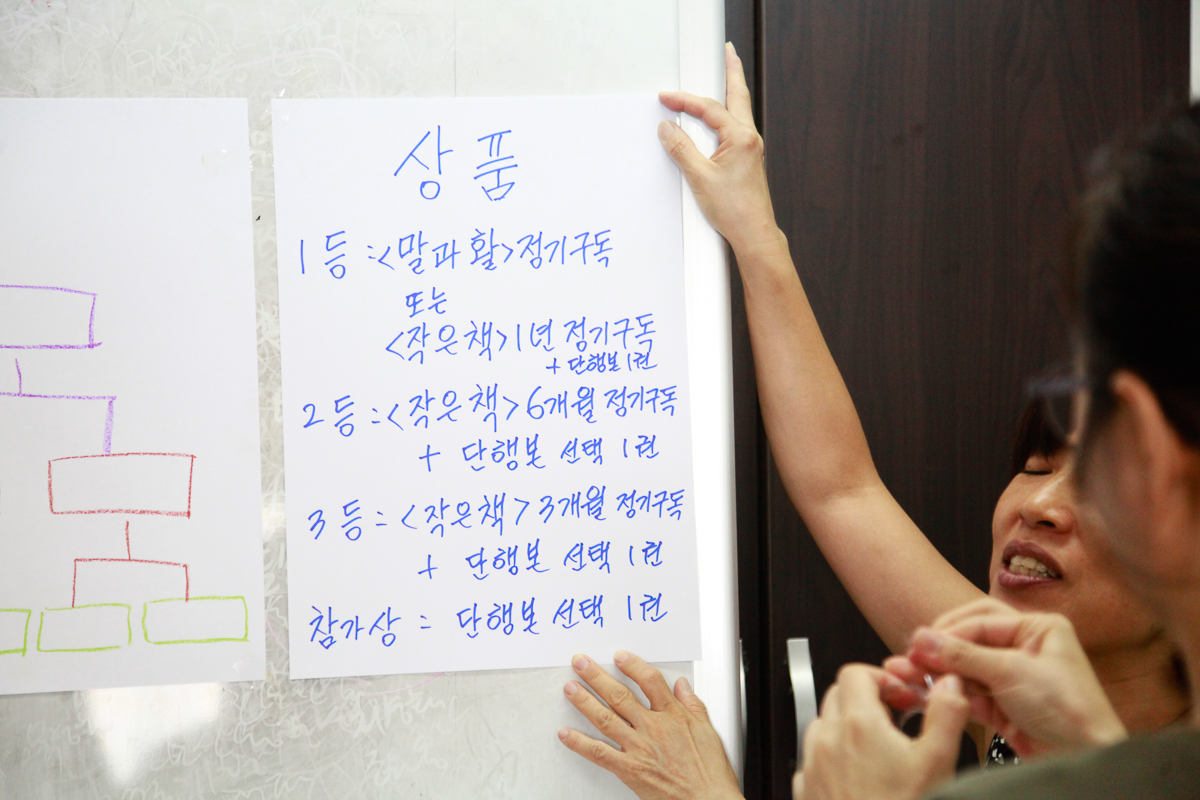 상품
1등 : <말과 활> 정기구독
또는
<작은책> 1년 정기구독
+ 단행본 1권
2등 : <작은책> 6개월 정기구독
+ 단행본 선택 1권
3등 : <작은책> 3개월 정기구독
+ 단행본 선택 1권
참가상 : 단행본 선택 1권